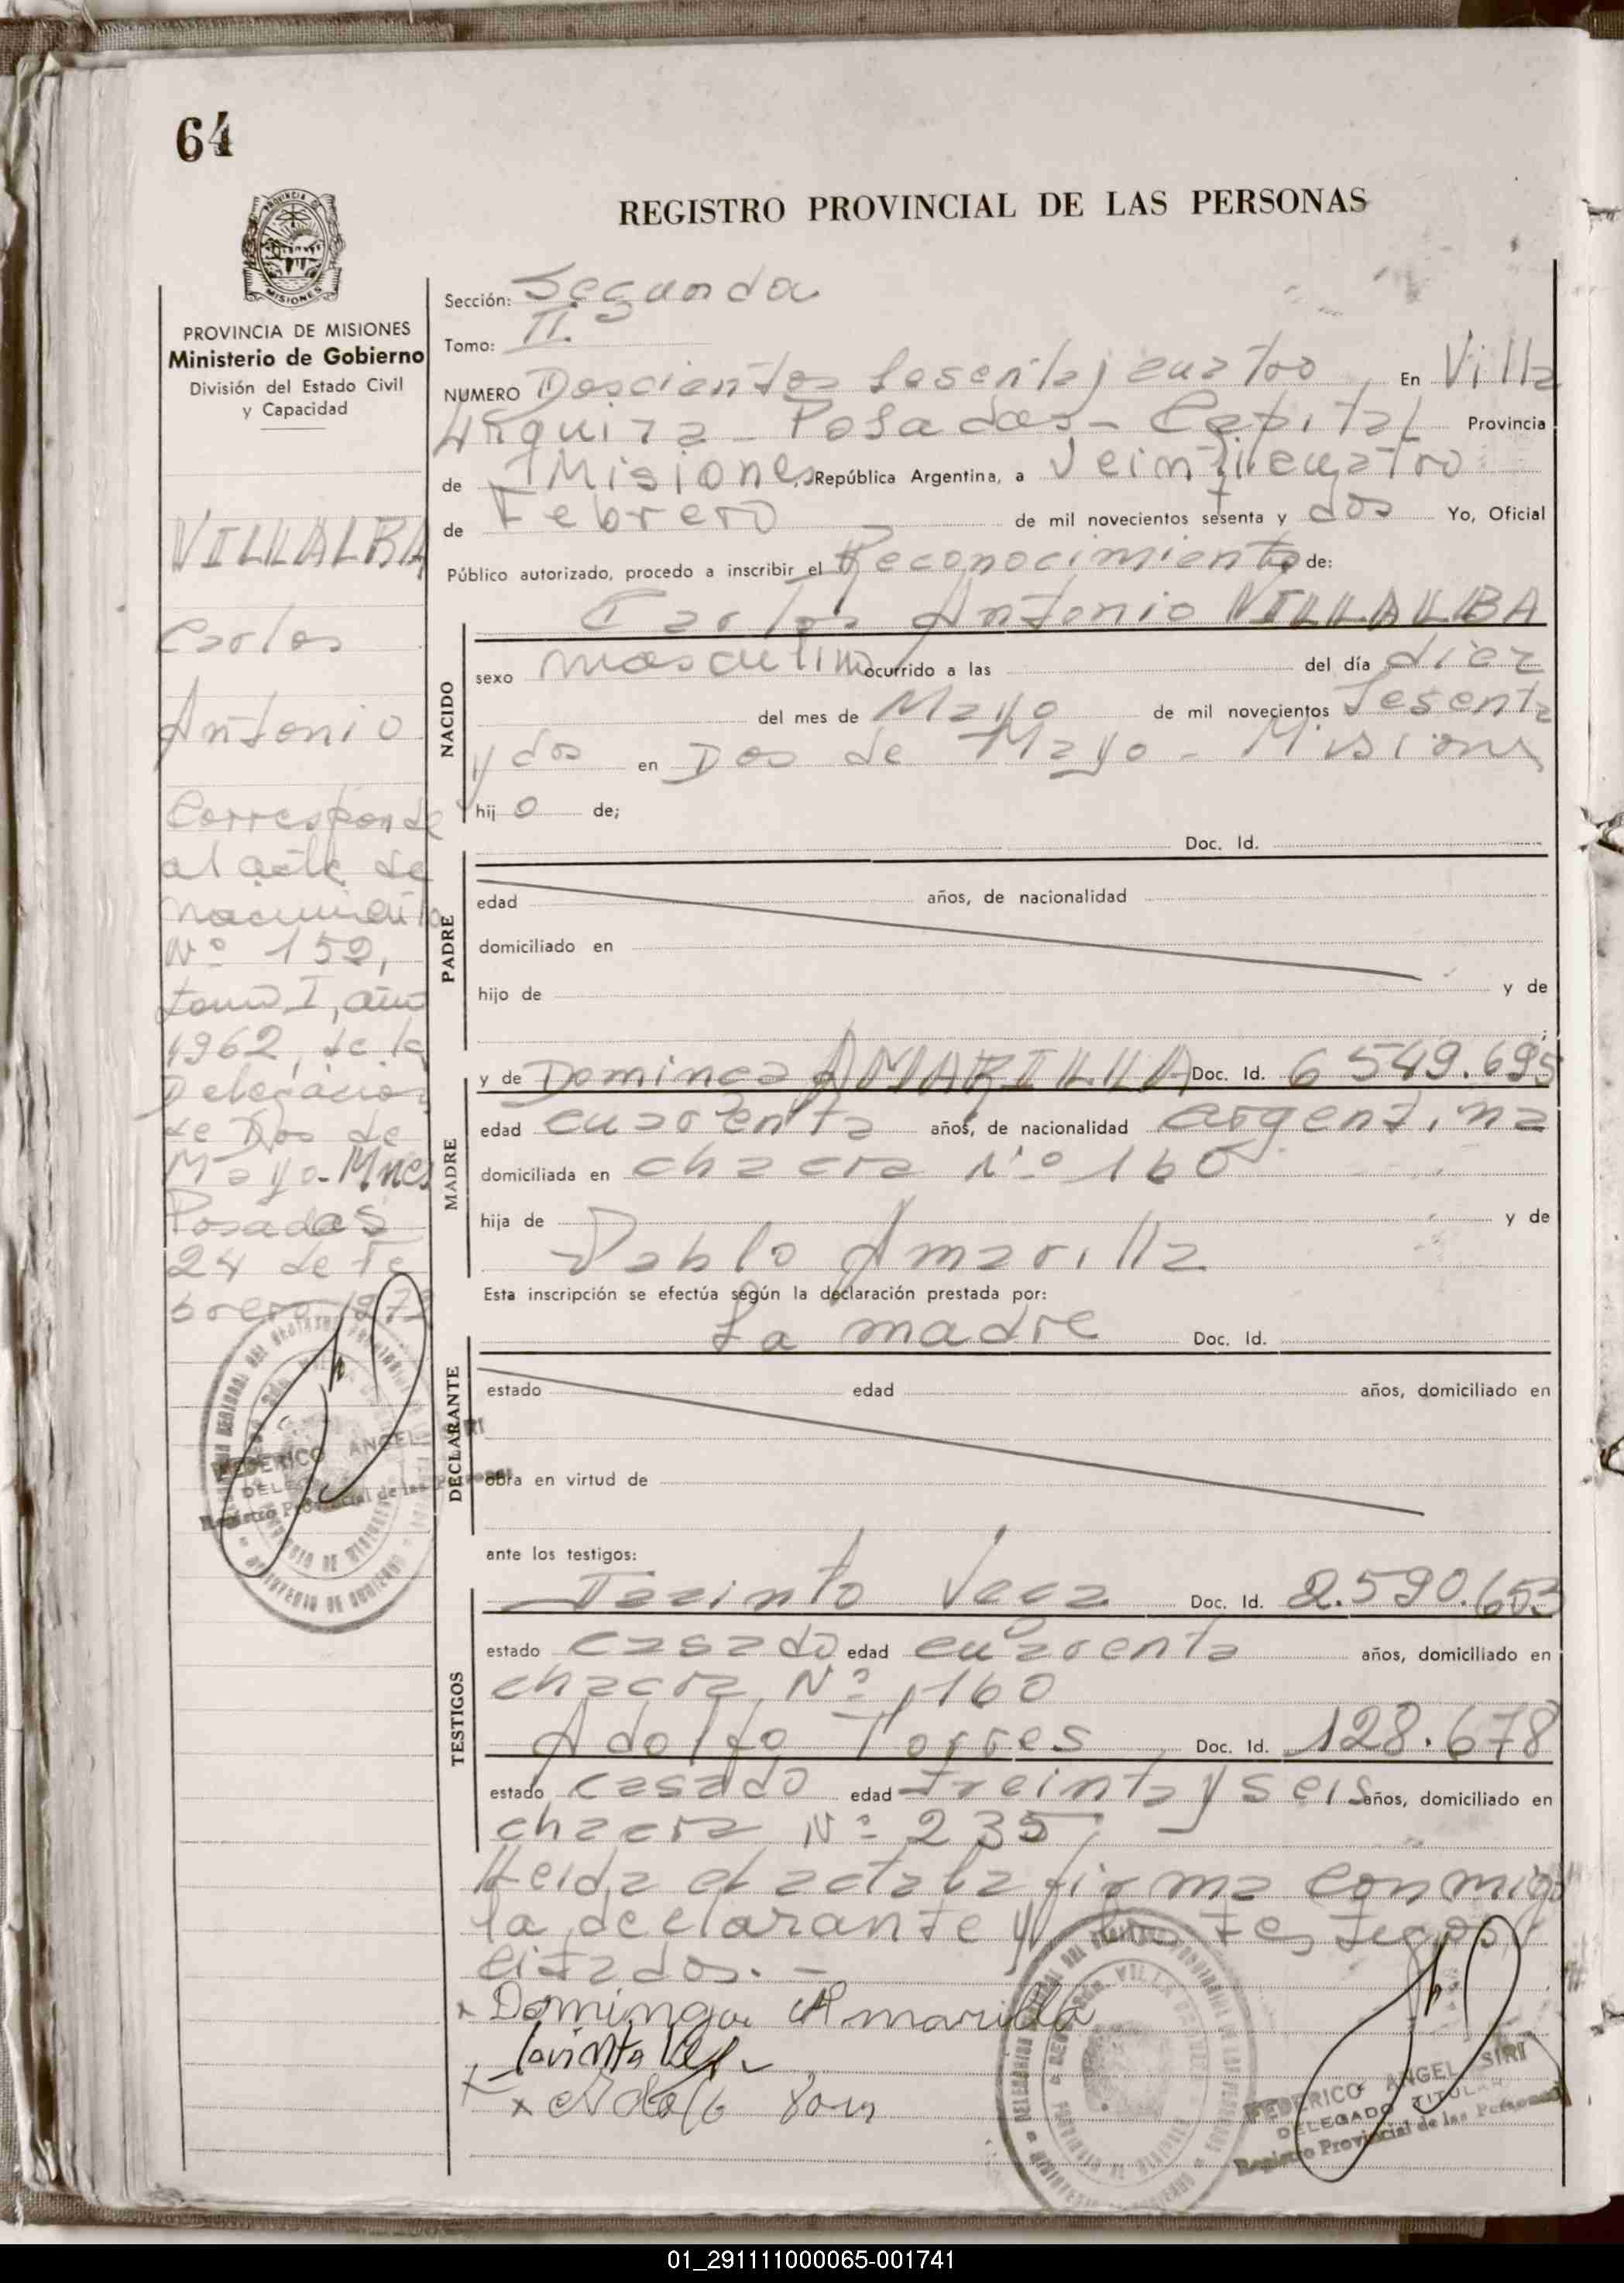 64
REGISTRO PROVINCIAL DE LAS PERSONAS
MISIONES
PROVINCIA DE MISIONES
Ministerio de Gobierno
División del Estado Civil
y Capacidad
VILLALBA
Carlos
Antonio
Corresponde
al acta de
nacimiento
Nº 159,
tomo I, año
1962, de la
Delegacion
de Dos de
Mayo-Mnes
Posadas
24 de Fe
brero
FEDERICO ANGEL SIRI
Registro Provincial de las Personas
Sección: Segunda
Tomo: II.
NUMERO Doscientos Sesenta y cuatro, En Villa
Urquiza - Posadas - Capital Provincia
de Misiones, República Argentina, a Veinticuatro
de Febrero de mil novecientos sesenta y dos Yo, Oficial
Público autorizado, procedo a inscribir el Reconocimiento de:
Carlos Antonio VILLALBA
NACIDO
sexo masculino ocurrido a las del día diez
del mes de Mayo de mil novecientos Sesenta
y dos en Dos de Mayo - Misiones
hij o de;
Doc. Id.
PADRE
edad años, de nacionalidad
domiciliado en
hijo de y de
;
MADRE
y de Dominga AMARILLA Doc. Id. 6549.695
edad cuarenta años, de nacionalidad argentina
domiciliada en chacra Nº 160
hija de y de
Pablo Amarilla
Esta inscripción se efectúa según la declaración prestada por:
La madre Doc. Id.
DECLARANTE
estado edad años, domiciliado en
obra en virtud de
ante los testigos:
TESTIGOS
Jacinto Vega Doc. Id. 2.590.653
estado casado edad cuarenta años, domiciliado en
chacra Nº 160
Adolfo Torres Doc. Id. 128.678
estado casado edad treinta y seis años, domiciliado en
chacra Nº 235
Leida el acta la firma conmigo
la declarante y los testigos
citados. -
x Dominga Amarilla
FEDERICO ANGEL SIRI
DELEGADO TITULAR
Registro Provincial de las Personas
01_291111000065-001741